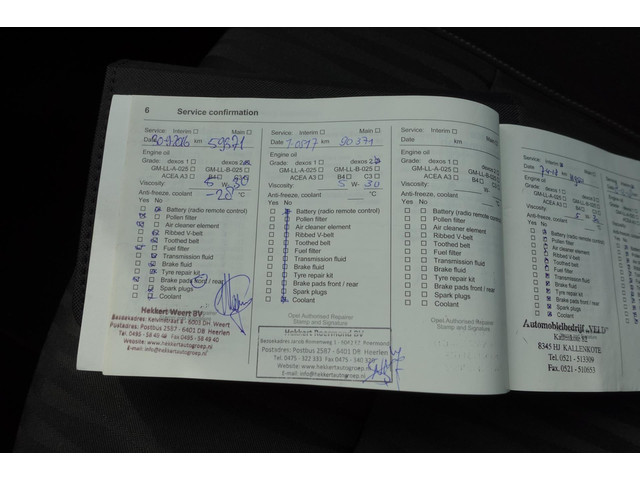 6 Service confirmation
Service: Interim ☐ Main ☐
Date 30-9-2016 km 59571
Engine oil
Grade: dexos 1 ☐ dexos 2
GM-LL-A-025 ☐ GM-LL-B-025 ☐
ACEA A3 ☐ B4 ☐ C3 ☐
Viscosity: 5 W- 30
Anti-freeze, coolant -28 °C
Yes No
Battery (radio remote control)
Pollen filter
Air cleaner element
Ribbed V-belt
Toothed belt
Fuel filter
Transmission fluid
Brake fluid
Tyre repair kit
Brake pads front / rear
Spark plugs
Coolant
Hekkert Weert BV.
6003 DH Weert
Postadres: Postbus 2587 - 6401 DB Heerlen
Website: www.hekkertautogroep.nl
E-mail: info@hekkertautogroep.nl
Service: Interim ☐ Main ☐
Date km 90371
Engine oil
Grade: dexos 1 ☐ dexos 2
GM-LL-A-025 ☐ GM-LL-B-025 ☐
ACEA A3 ☐ B4 ☐ C3 ☐
Viscosity: 5 W- 30
Anti-freeze, coolant °C
Yes No
Battery (radio remote control)
Pollen filter
Air cleaner element
Ribbed V-belt
Toothed belt
Fuel filter
Transmission fluid
Brake fluid
Tyre repair kit
Brake pads front / rear
Spark plugs
Coolant
Opel Authorised Repairer
Stamp and Signature
Hekkert Roermond BV
Postadres: Postbus 2587 - 6401 DB Heerlen
Tel. 0475 - 322 333 Fax 0475 - 340
Website: www.hekkertautogroep.nl
E-mail: info@hekkertautogroep.nl
Service: Interim ☐ Main ☐
Date km
Engine oil
Grade: dexos 1 ☐ dexos 2 ☐
GM-LL-A-025 ☐ GM-LL-B-025 ☐
ACEA A3 ☐ B4 ☐ C3 ☐
Viscosity: W-
Anti-freeze, coolant °C
Yes No
Battery (radio remote control)
Pollen filter
Air cleaner element
Ribbed V-belt
Toothed belt
Fuel filter
Transmission fluid
Brake fluid
Tyre repair kit
Brake pads front / rear
Spark plugs
Coolant
Opel Authorised Repairer
Stamp and Signature
Service: Interim
Date
Engine oil
Grade: dexos 1 ☐
GM-LL-A-025 ☐
ACEA A3 ☐
Viscosity: 5
Anti-freeze, coolant
Yes No
Battery
Pollen filter
Air cleaner
Ribbed V-belt
Toothed belt
Fuel filter
Transmission
Brake fluid
Tyre repair
Brake pads
Spark plugs
Coolant
Automobielbedrijf „VELD"
8345 HJ KALLENKOTE
Tel. 0521 - 513309
Fax. 0521 - 510653